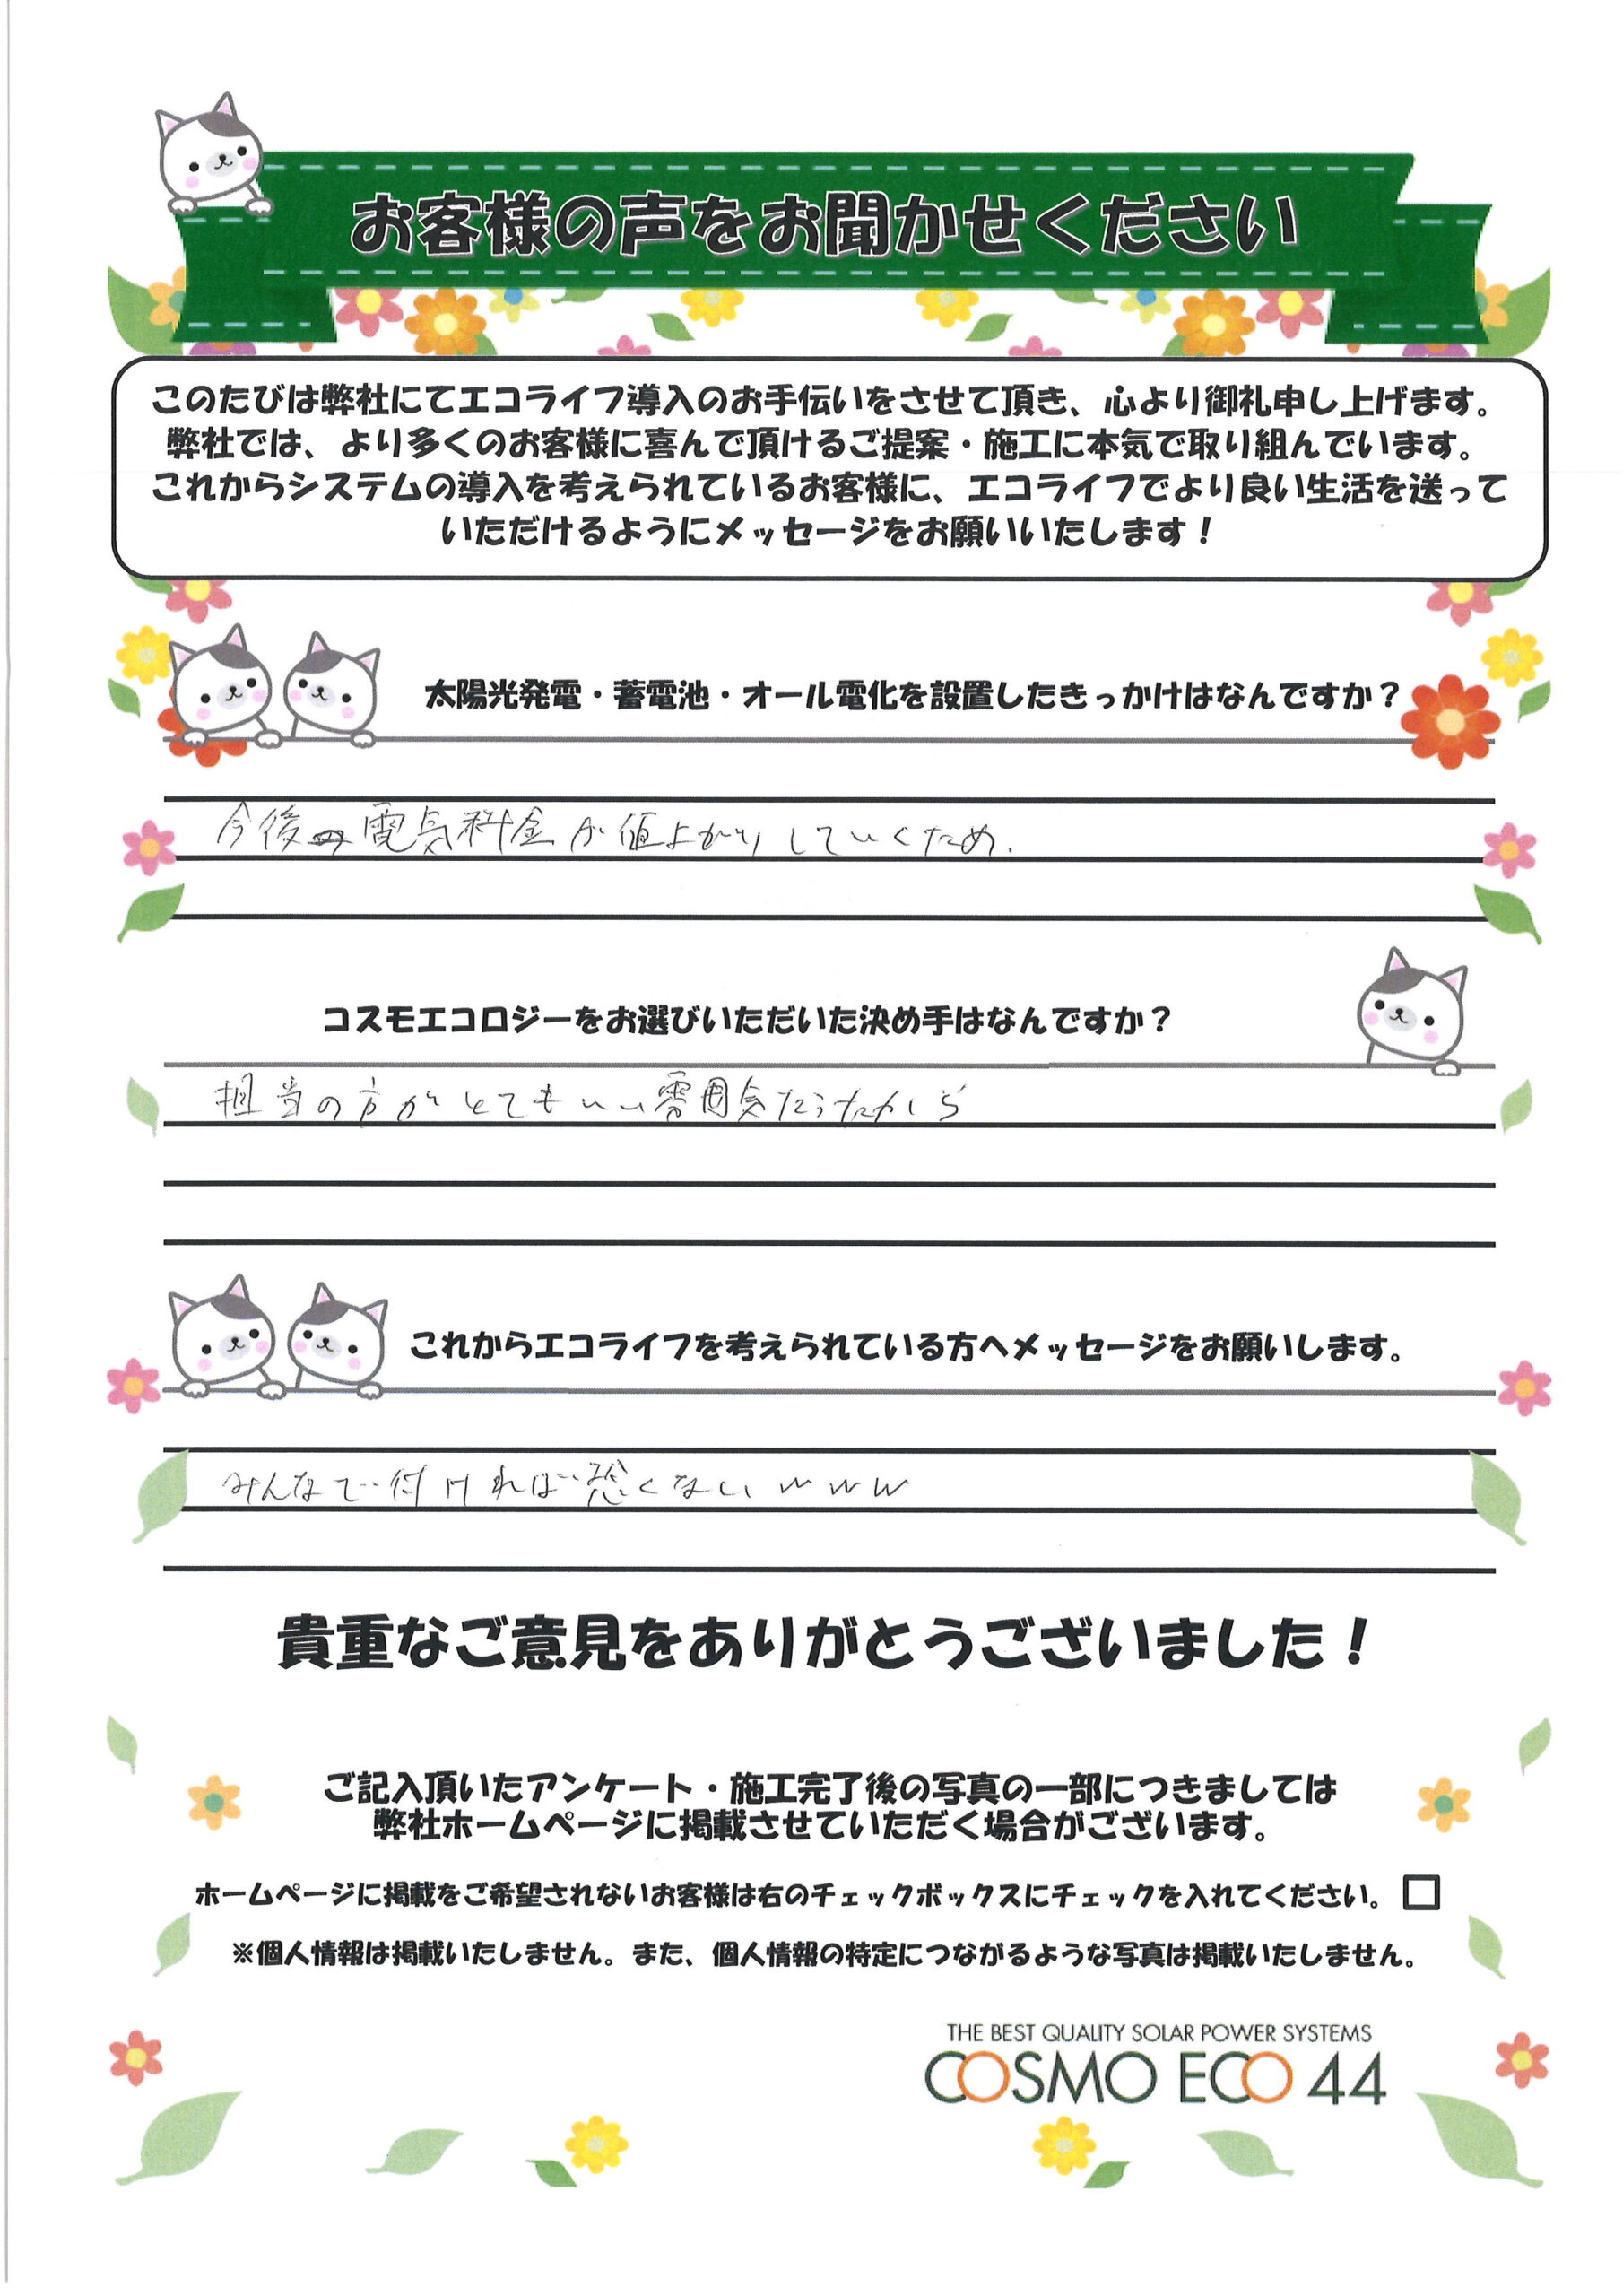 お客様の声をお聞かせください
このたびは弊社にてエコライフ導入のお手伝いをさせて頂き、心より御礼申し上げます。
弊社では、より多くのお客様に喜んで頂けるご提案・施工に本気で取り組んでいます。
これからシステムの導入を考えられているお客様に、エコライフでより良い生活を送って
いただけるようにメッセージをお願いいたします！
太陽光発電・蓄電池・オール電化を設置したきっかけはなんですか？
今後電気料金が値上がりしていくため.
コスモエコロジーをお選びいただいた決め手はなんですか？
担当の方がとてもいい雰囲気だったから
これからエコライフを考えられている方へメッセージをお願いします。
みんなで付ければ恐くない www
貴重なご意見をありがとうございました！
ご記入頂いたアンケート・施工完了後の写真の一部につきましては
弊社ホームページに掲載させていただく場合がございます。
ホームページに掲載をご希望されないお客様は右のチェックボックスにチェックを入れてください。
※個人情報は掲載いたしません。また、個人情報の特定につながるような写真は掲載いたしません。
THE BEST QUALITY SOLAR POWER SYSTEMS
COSMO ECO 44